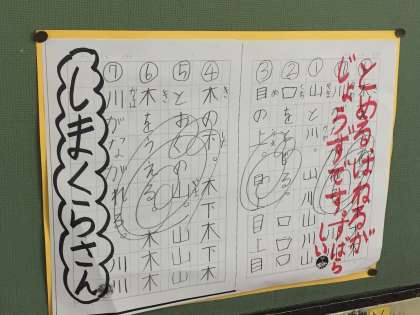 とめるはねるが
じょうずです。すばら
しい
①山と川。山川
②口をとじる。口口口
③目の上。目上目
④木の下。木下木
⑤とおくの山。山山山
⑥木をうえる。木木
⑦川がながれる。川川
しまくらさん